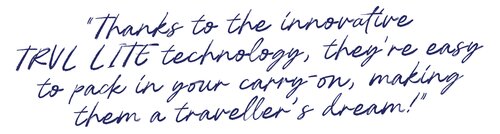 "Thanks to the innovative
TRVL LITE technology, they're easy
to pack in your carry-on, making
them a traveller's dream!"